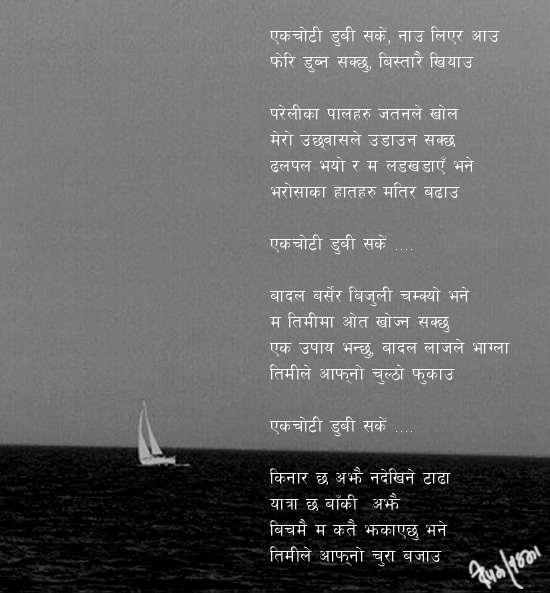 एकचोटी डुबी सकें, नाउ लिएर आउ
फेरि डुब्न सक्छु, बिस्तारै खियाउ
परेलीका पालहरु जतनले खोल
मेरो उछवासले उडाउन सक्छ
ढलपल भयो र म लडखडाएँ भने
भरोसाका हातहरु मतिर बढाउ
एकचोटी डुबी सकें ....
बादल बर्सेर बिजुली चम्क्यो भने
म तिमीमा ओत खोज्न सक्छु
एक उपाय भन्छु, बादल लाजले भाग्ला
तिमीले आफ्नो चुल्ठो फुकाउ
एकचोटी डुबी सकें ....
किनार छ अझै नदेखिने टाढा
यात्रा छ बाँकी अझै
बिचमै म कतै झकाएछु भने
तिमीले आफ्नो चुरा बजाउ